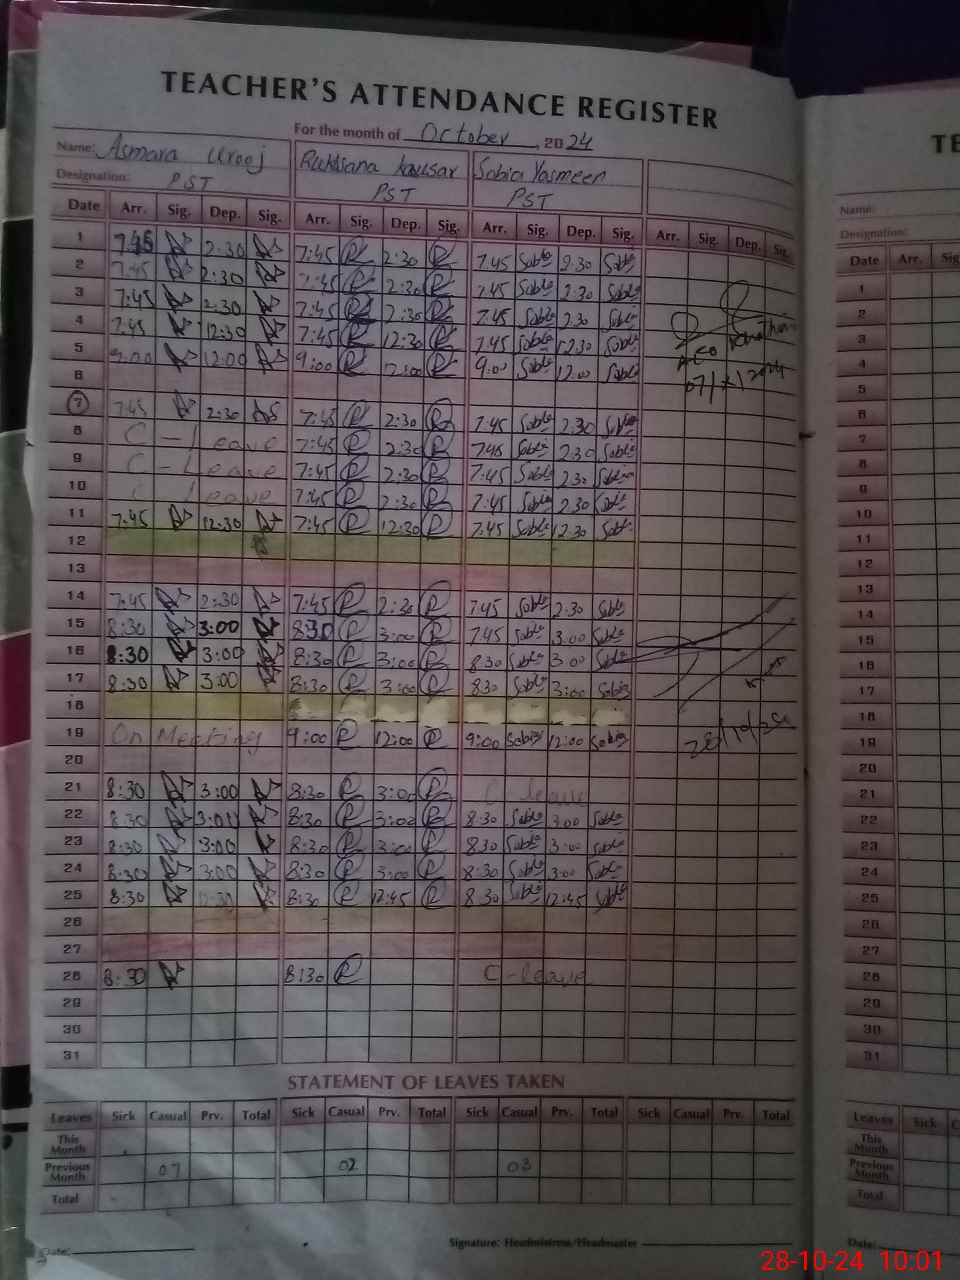 TEACHER'S ATTENDANCE REGISTER
For the month of October, 2024
Name: Asmara Urooj Rukhsana kausar Sobia Yasmeen
Designation: PST PST PST
Date Arr. Sig. Dep. Sig. Arr. Sig. Dep. Sig. Arr. Sig. Dep. Sig. Arr. Sig. Dep. Sig.
1 7:45 2:30 7:45 2:30 7:45 Sobia 2:30 Sobia
2 7:45 2:30 7:45 2:30 7:45 Sobia 2:30 Sobia
3 7:45 2:30 7:45 2:30 7:45 Sobia 2:30 Sobia
4 7:45 12:30 7:45 12:30 7:45 Sobia 12:30 Sobia
5 9:00 12:00 9:00 12:00 9:00 Sobia 12:00 Sobia
6
7 7:45 2:30 7:45 2:30 7:45 Sobia 2:30 Sobia
8 C - Leave 7:45 2:30 7:45 Sobia 2:30 Sobia
9 C - Leave 7:45 2:30 7:45 Sobia 2:30 Sobia
10 C Leave 7:45 2:30 7:45 Sobia 2:30 Sobia
11 7:45 12:30 7:45 12:30 7:45 Sobia 12:30 Sobia
12
13
14 7:45 2:30 7:45 2:30 7:45 Sobia 2:30 Sobia
15 8:30 3:00 8:30 3:00 7:45 Sobia 3:00 Sobia
16 8:30 3:00 8:30 3:00 8:30 Sobia 3:00 Sobia
17 8:30 3:00 8:30 3:00 8:30 Sobia 3:00 Sobia
18
19 On Meeting 9:00 12:00 9:00 Sobia 12:00 Sobia
20
21 8:30 3:00 8:30 3:00 C - leave
22 8:30 3:00 8:30 3:00 8:30 Sobia 3:00 Sobia
23 8:30 3:00 8:30 3:00 8:30 Sobia 3:00 Sobia
24 8:30 3:00 8:30 3:00 8:30 Sobia 3:00 Sobia
25 8:30 8:30 12:45 8:30 Sobia 12:45 Sobia
26
27
28 8:30 8:30 C - leave
29
30
31
AEO
28/10/24
STATEMENT OF LEAVES TAKEN
Leaves Sick Casual Prv. Total Sick Casual Prv. Total Sick Casual Prv. Total Sick Casual Prv. Total
This Month
Previous Month 07 02 03
Total
Date:
Signature: Headmistress/Headmaster
TE
Name:
Designation:
Date Arr. Sig
1
2
3
4
5
6
7
8
9
10
11
12
13
14
15
16
17
18
19
20
21
22
23
24
25
26
27
28
29
30
31
Leaves Sick C
This Month
Previous Month
Total
Date:
28-10-24 10:01